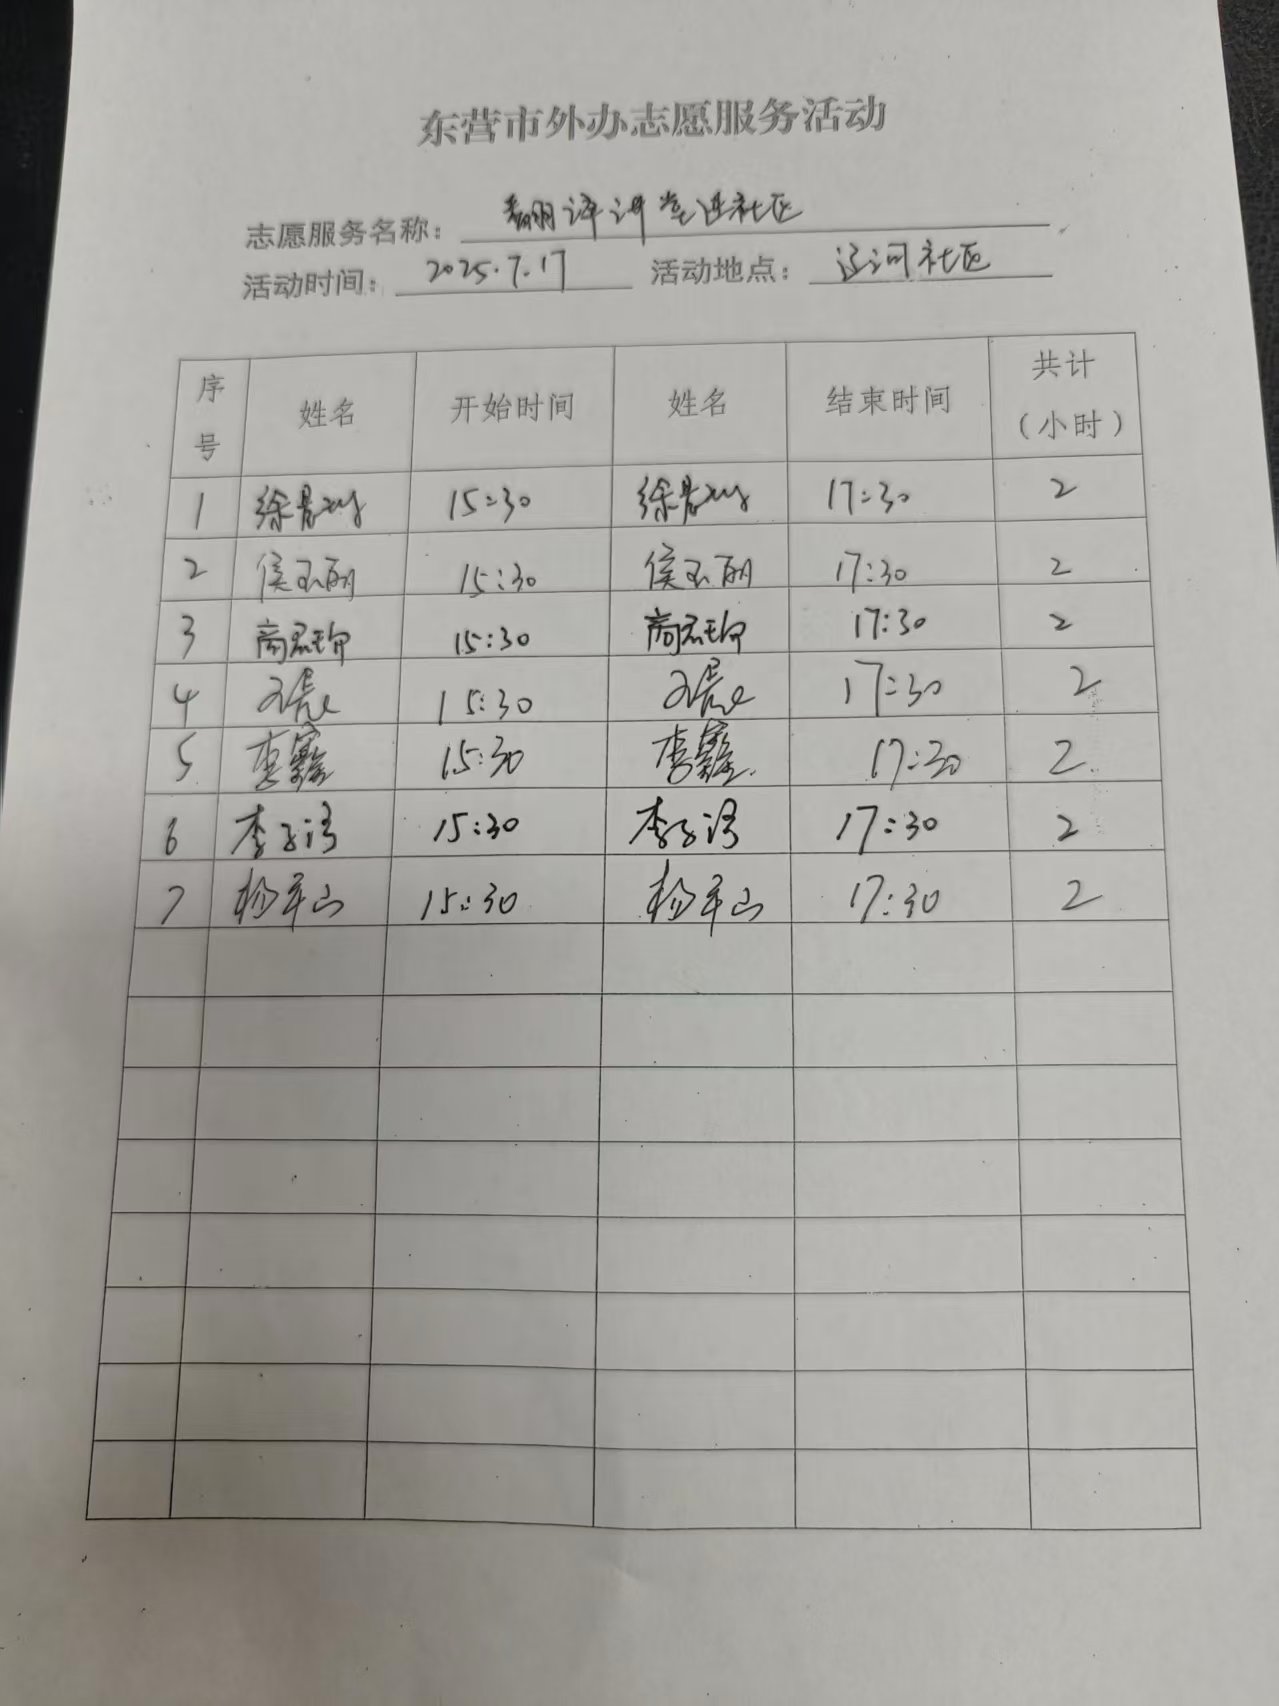 东营市外办志愿服务活动
志愿服务名称： 翻译讲堂进社区
活动时间： 2025.7.17 活动地点： 辽河社区
序号 姓名 开始时间 姓名 结束时间 共计（小时）
1 徐 15:30 徐 17:30 2
2 侯玉丽 15:30 侯玉丽 17:30 2
3 商 15:30 商 17:30 2
4 15:30 17:30 2
5 李鑫 15:30 李鑫 17:30 2
6 李子涛 15:30 李子涛 17:30 2
7 杨军山 15:30 杨军山 17:30 2